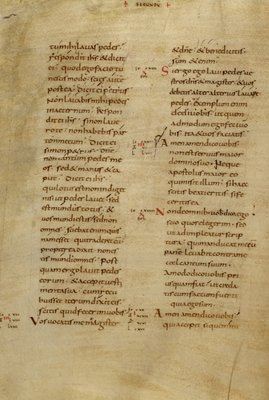 SECUNDŪ
tu mihi lavas pedes
Respondit ihs & dicit
ei. Quod ego facio tu
nescis modo. scies autē
postea. Dicit ei petrus
Non lavabis mihi pedes
in aeternum. Respon
dit ei ihs. si non lave
ro te. non habebis par
tem mecum. Dicit ei
simon petrus. dñe
non tantum pedes me
os. sed & manus & ca
put. Dicit ei ihs
qui lotus est non indiget
nisi ut pedes lavet. sed
est mundus totus. &
vos mundi estis sed non
omnes. sciebat enim quis
nam esset qui traderet eum
propterea dixit. non es
tis mundi omnes. Post
quam ergo lavit pedes
eorum. & accepit vesti
menta sua. cum recu
buisset iterum dixit eis
scitis quid fecerim vobis
Vos vocatis me magister
& dñe. & bene dicitis
sum & enim.
Si ergo ego lavi pedes ve
stros dñs & magister. & vos
debetis alter alterius lavare
pedes. Exemplum enim
dedi vobis. ut quem
admodum ego feci vo
bis. ita & vos faciatis.
Amen amen dico vobis
non est servus maior
domino suo. Neque
apostolus maior eo
qui misit illum. si haec
scitis beati eritis. si fe
ceritis ea.
Non de omnibus vobis dico ego
scio quos elegerim. sed
ut adimpleatur scrip
tura. qui manducat mecū
panē levabit contra me
calcaneum suum.
Amodo dico vobis pri
usquam fiat. ut creda
tis cum factum fuerit
quia ego sum
Amen amen dico vobis
qui accipit si quem mi